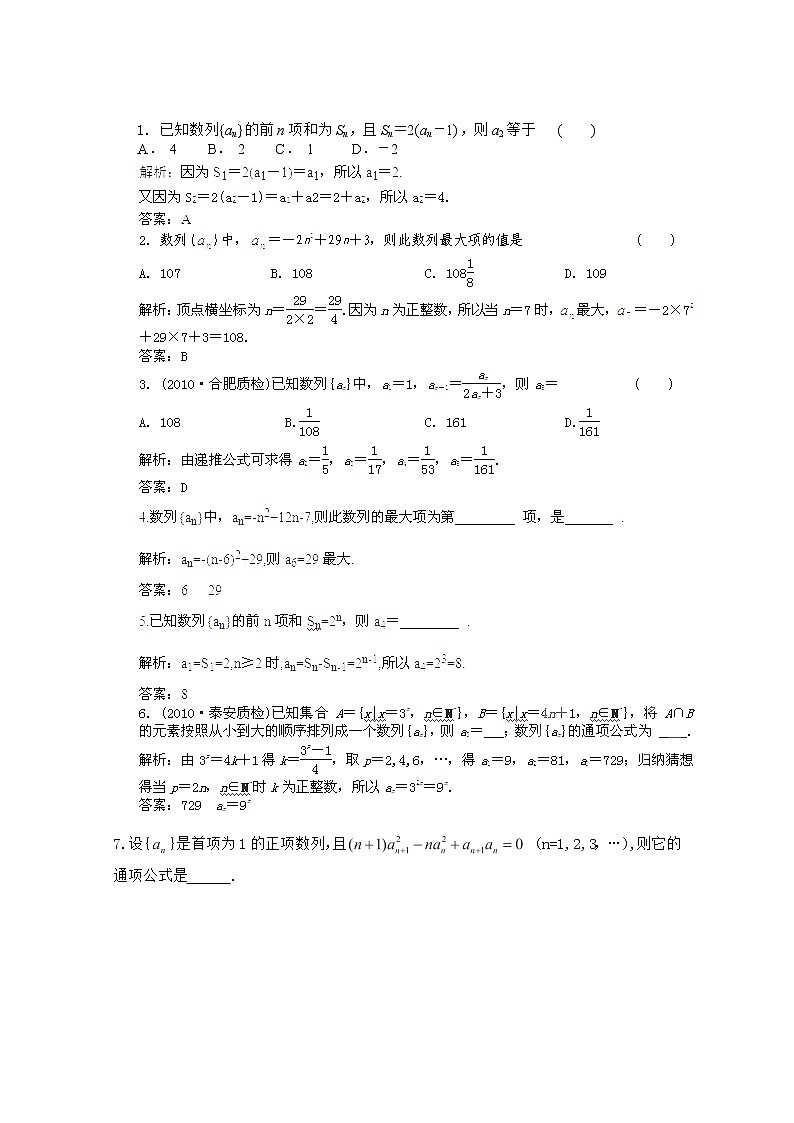 1. 已知数列{aₙ}的前 n 项和为 Sₙ,且 Sₙ=2(aₙ-1),则 a₂等于 ( )
A. 4 B. 2 C. 1 D.-2
解析:因为 S₁=2(a₁-1)=a₁,所以 a₁=2.
又因为 S₂=2(a₂-1)=a₁+a2=2+a₂,所以 a₂=4.
答案:A
2. 数列{aₙ}中, aₙ=-2n²+29n+3,则此数列最大项的值是 ( )
A. 107 B. 108 C. 108 1/8 D. 109
解析:顶点横坐标为 n=29/(2×2)=29/4.因为 n 为正整数,所以当 n=7 时,aₙ最大,a₇=-2×7²
+29×7+3=108.
答案:B
3. (2010·合肥质检)已知数列{aₙ}中, a₁=1, aₙ₊₁=aₙ/(2aₙ+3),则 a₅= ( )
A. 108 B.1/108 C. 161 D.1/161
解析:由递推公式可求得 a₂=1/5, a₃=1/17, a₄=1/53, a₅=1/161.
答案:D
4.数列{aₙ}中, aₙ=-n²+12n-7,则此数列的最大项为第________ 项,是_______ .
解析:aₙ=-(n-6)²+29,则 a₆=29 最大.
答案:6 29
5.已知数列{aₙ}的前 n 项和 Sₙ=2ⁿ,则 a₄=________ .
解析:a₁=S₁=2,n≥2 时,aₙ=Sₙ-Sₙ₋₁=2ⁿ⁻¹,所以 a₄=2³=8.
答案:8
6. (2010·泰安质检)已知集合 A={x|x=3ⁿ,n∈N*},B={x|x=4n+1,n∈N*},将 A∩B
的元素按照从小到大的顺序排列成一个数列{aₙ},则 a₃=___;数列{aₙ}的通项公式为 ____.
解析:由 3ᵖ=4k+1 得 k=(3ᵖ-1)/4,取 p=2,4,6,…,得 a₁=9,a₂=81,a₃=729;归纳猜想
得当 p=2n,n∈N*时 k 为正整数,所以 aₙ=3²ⁿ=9ⁿ.
答案:729 aₙ=9ⁿ
7.设{aₙ}是首项为1的正项数列,且(n+1)aₙ₊₁²-naₙ²+aₙ₊₁aₙ=0 (n=1,2,3,…),则它的
通项公式是______.